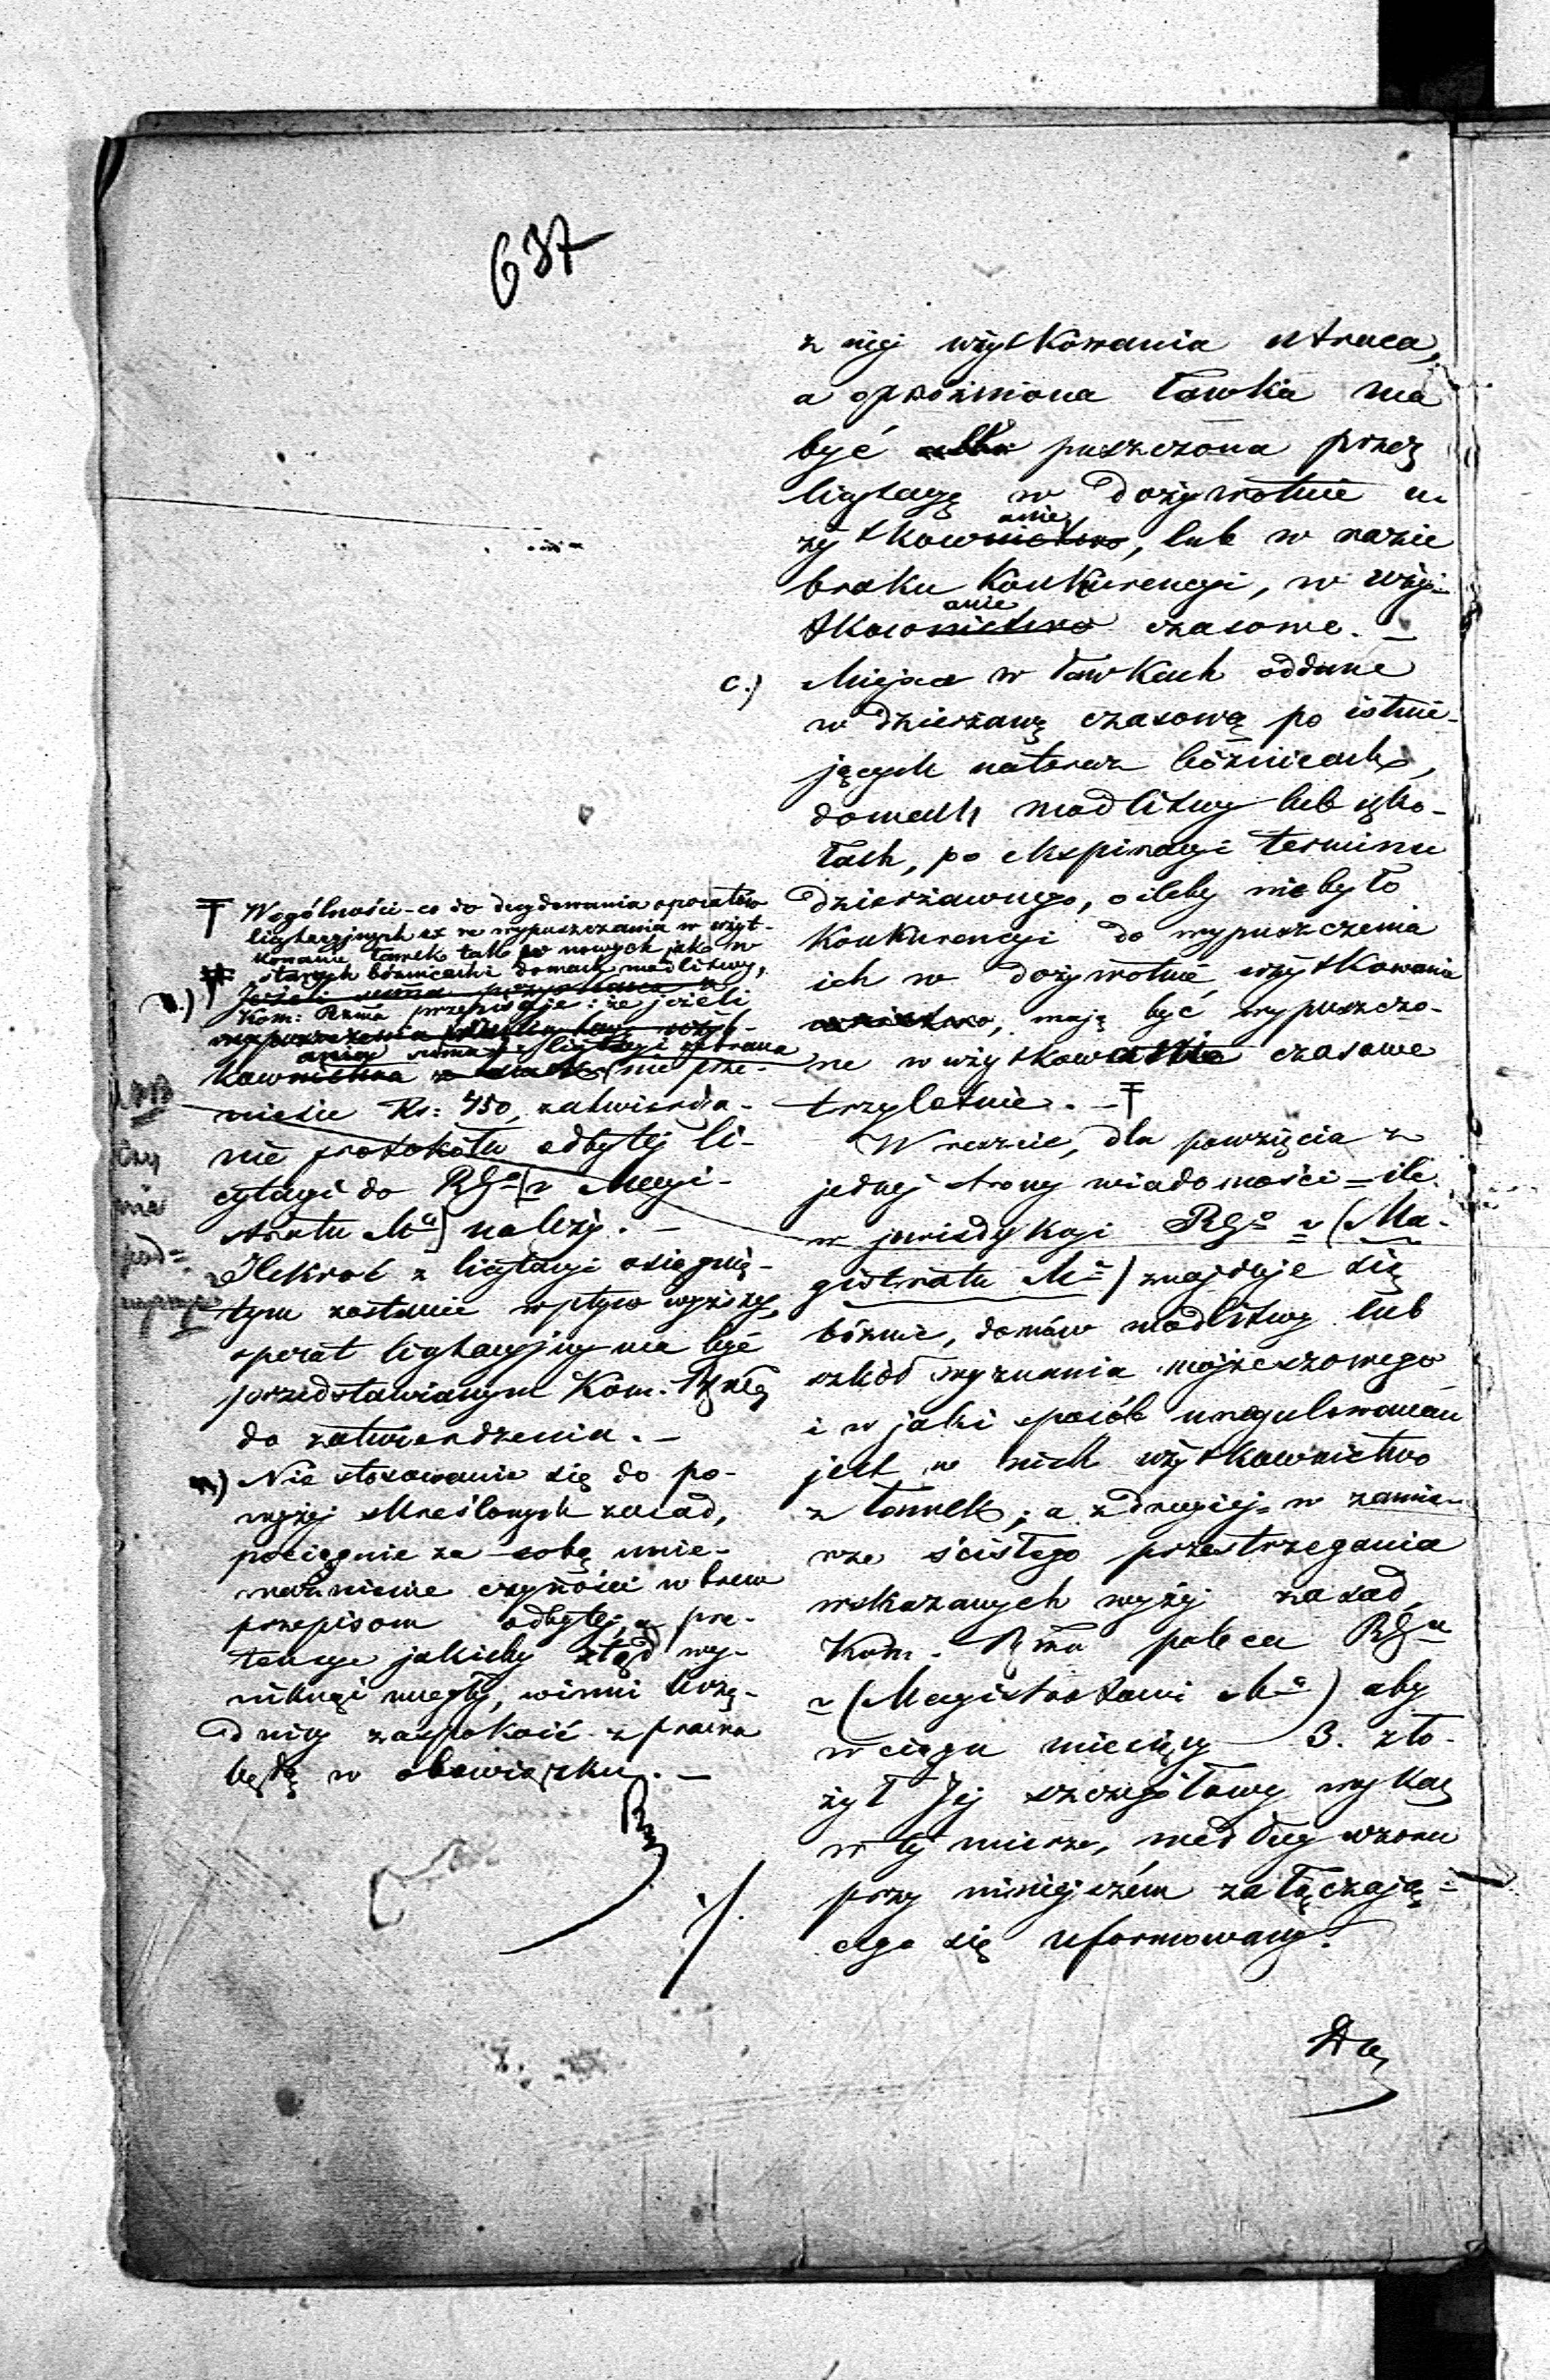 637
z niej użytkowania utraca,
a opróżniona ławka ma
być puszczona przez
licytacyę w dożywotnie u-
żytkowanie, lub w razie
braku konkurencyi, w uży-
tkowanie czasowe. —
c.) Miejsca w ławkach oddane
w dzierżawę czasową po istnie-
jących nateraz bóżnicach,
domach modlitwy lub szko-
łach, po ekspiracyi terminu
dzierżawnego, o ileby nie było
konkurencyi do wypuszczenia
ich w dożywotnie użytkowania
mają być wypuszczo-
ne w użytkowanie czasowe
trzyletnie. —
Wreszcie, dla powzięcia z
jednej strony wiadomości – ile
w jurisdykcyi RGo (Ma-
gistratu Ma) znajduje się
bóżnic, domów modlitwy lub
szkół wyznania mojżeszowego
i w jaki sposób uregulowaném
jest w nich użytkownictwo
z ławek; a z drugiej w zamia-
rze ścisłego przestrzegania
wskazanych wyżej zasad,
Kom. Rzwa poleca RGu
(Magistratowi Ma) aby
w ciągu miesięcy 3. zło-
żył Jej szczegółowy wykaz
w tej mierze, według wzoru
przy niniejszém załączają-
cego się uformowany.
Wogólności – co do decydowania operatów
licytacyjnych ex re wypuszczania w użyt-
kowanie ławek tak w nowych jako w
starych bóżnicach i domach modlitwy,
Kom: Rzwa przepisuje: że jeżeli
suma z licytacyi zebrana
nie prze-
niesie Rs: 750, zatwierdza-
nie protokółu odbytéj li-
cytacyi do RGo (Magi-
stratu Ma) należy. —
Ilekroć z licytacyi osiągnię-
tym zostanie wpływ wyższy,
operat licytacyjny ma być
przedstawianym Kom. Rzwéj
do zatwierdzenia. —
Nie stosowanie się do po-
wyżej skreślonych zasad,
pociągnie za sobą unie-
ważnienie czynności wbrew
przepisom odbytéj, a pre-
tensye jakieby ztąd wy-
niknąć mogły, winni Urzę-
dnicy zaspokoić z prawa
będą w obowiązku. —
Czy
nie